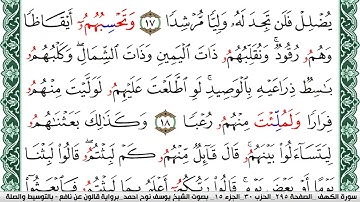 يُضْلِلْ فَلَن تَجِدَ لَهُۥ وَلِيّٗا مُّرْشِدٗا ١٧ وَتَحْسِبُهُمُۥ أَيْقَاظٗا
وَهُمُۥ رُقُودٞ وَنُقَلِّبُهُمُۥ ذَاتَ اَلْيَمِينِ وَذَاتَ اَلشِّمَالِ وَكَلْبُهُمُۥ
بَٰسِطٞ ذِرَاعَيْهِ بِالْوَصِيدِ لَوِ اِطَّلَعْتَ عَلَيْهِمُۥ لَوَلَّيْتَ مِنْهُمُۥ
فِرَارٗا وَلَمُلِّئْتَ مِنْهُمُۥ رُعْبٗا ١٨ وَكَذَٰلِكَ بَعَثْنَٰهُمُۥ
لِيَتَسَآءَلُواْ بَيْنَهُمُۥ قَالَ قَآئِلٞ مِّنْهُمُۥ كَمْ لَبِثْتُمُۥ قَالُواْ لَبِثْنَا
يَوْماً أَوْ بَعْضَ يَوْمٖ قَالُواْ رَبُّكُمُۥ أَعْلَمُ بِمَا لَبِثْتُمُۥ فَابْعَثُواْ
سورة الكهف الصفحة ٢٩٥ الحزب ٣٠ الجزء ١٥ بصوت الشيخ يوسف نوح أحمد برواية قالون عن نافع - بالتوسيط والصلة